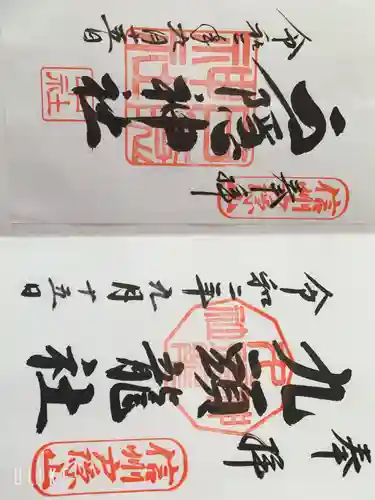 奉拝
信州戸隠山
戸隠神社
令和二年九月十五日
奉拝
九頭龍社
信州戸隠山
令和二年九月十五日